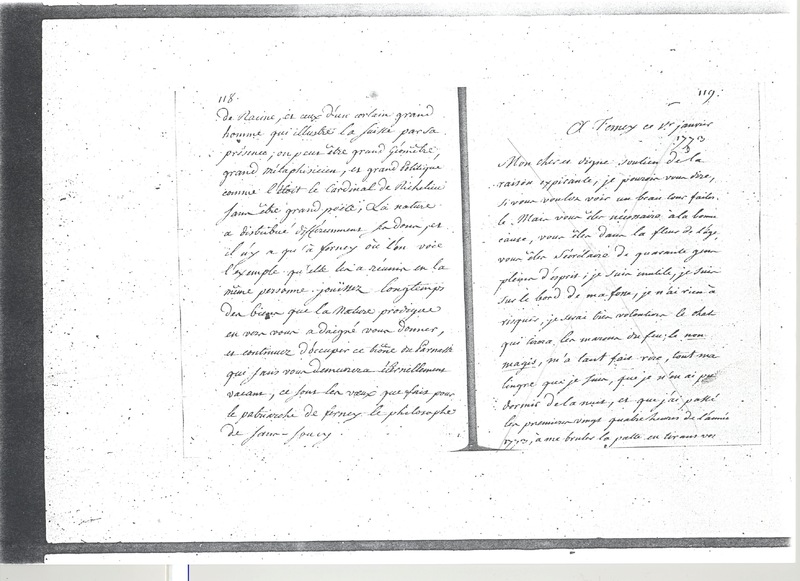 118.
de Racine, et ceux d'un certain grand
homme qui illustre la suite par sa
présence; on peut être grand Géomêtre,
grand métaphisicien, et grand Politique
comme l'étoit le Cardinal de Richelieu
sans être grand poëte, La nature
a distribué differemment ses dons, et
il n'y a qu'à ferney où l'on voie
l'exemple qu'elle les a réunis en la
même personne. jouissez longtemps
des biens que la Nature prodigue
en vers vous a daigné vous donner,
et continuez d'occuper ce trône du Parnasse
qui sans vous demeurera éternellement
vacant, ce sont les vœux que fait pour
le patriarche de ferney le philosophe
de Sans-Soucy.
119.
A Ferney ce 1.er janvier
1773
Mon cher et digne soutien de la
raison expirante, je pourois vous dire,
si vous voulez voir un beau tour faites
le. Mais vous êtes nécessaire à la bonne
cause, vous êtes dans la fleur de l'âge,
vous êtes Sécrétaire de quarante gens
pleins d'esprit; je suis inutile, je suis
sur le bord de ma fosse, je n'ai rien à
risquer, je serai bien volontiers le chat
qui tirera les marons du feu; le non
magis, m'a tant fait rire, tout ma
lingre que je suis, que je n'en ai pu
dormir de la nuit, et que j'ai passé
les premieres vingt quatre heures de l'année
1773, à me bruler la patte en tirant vos